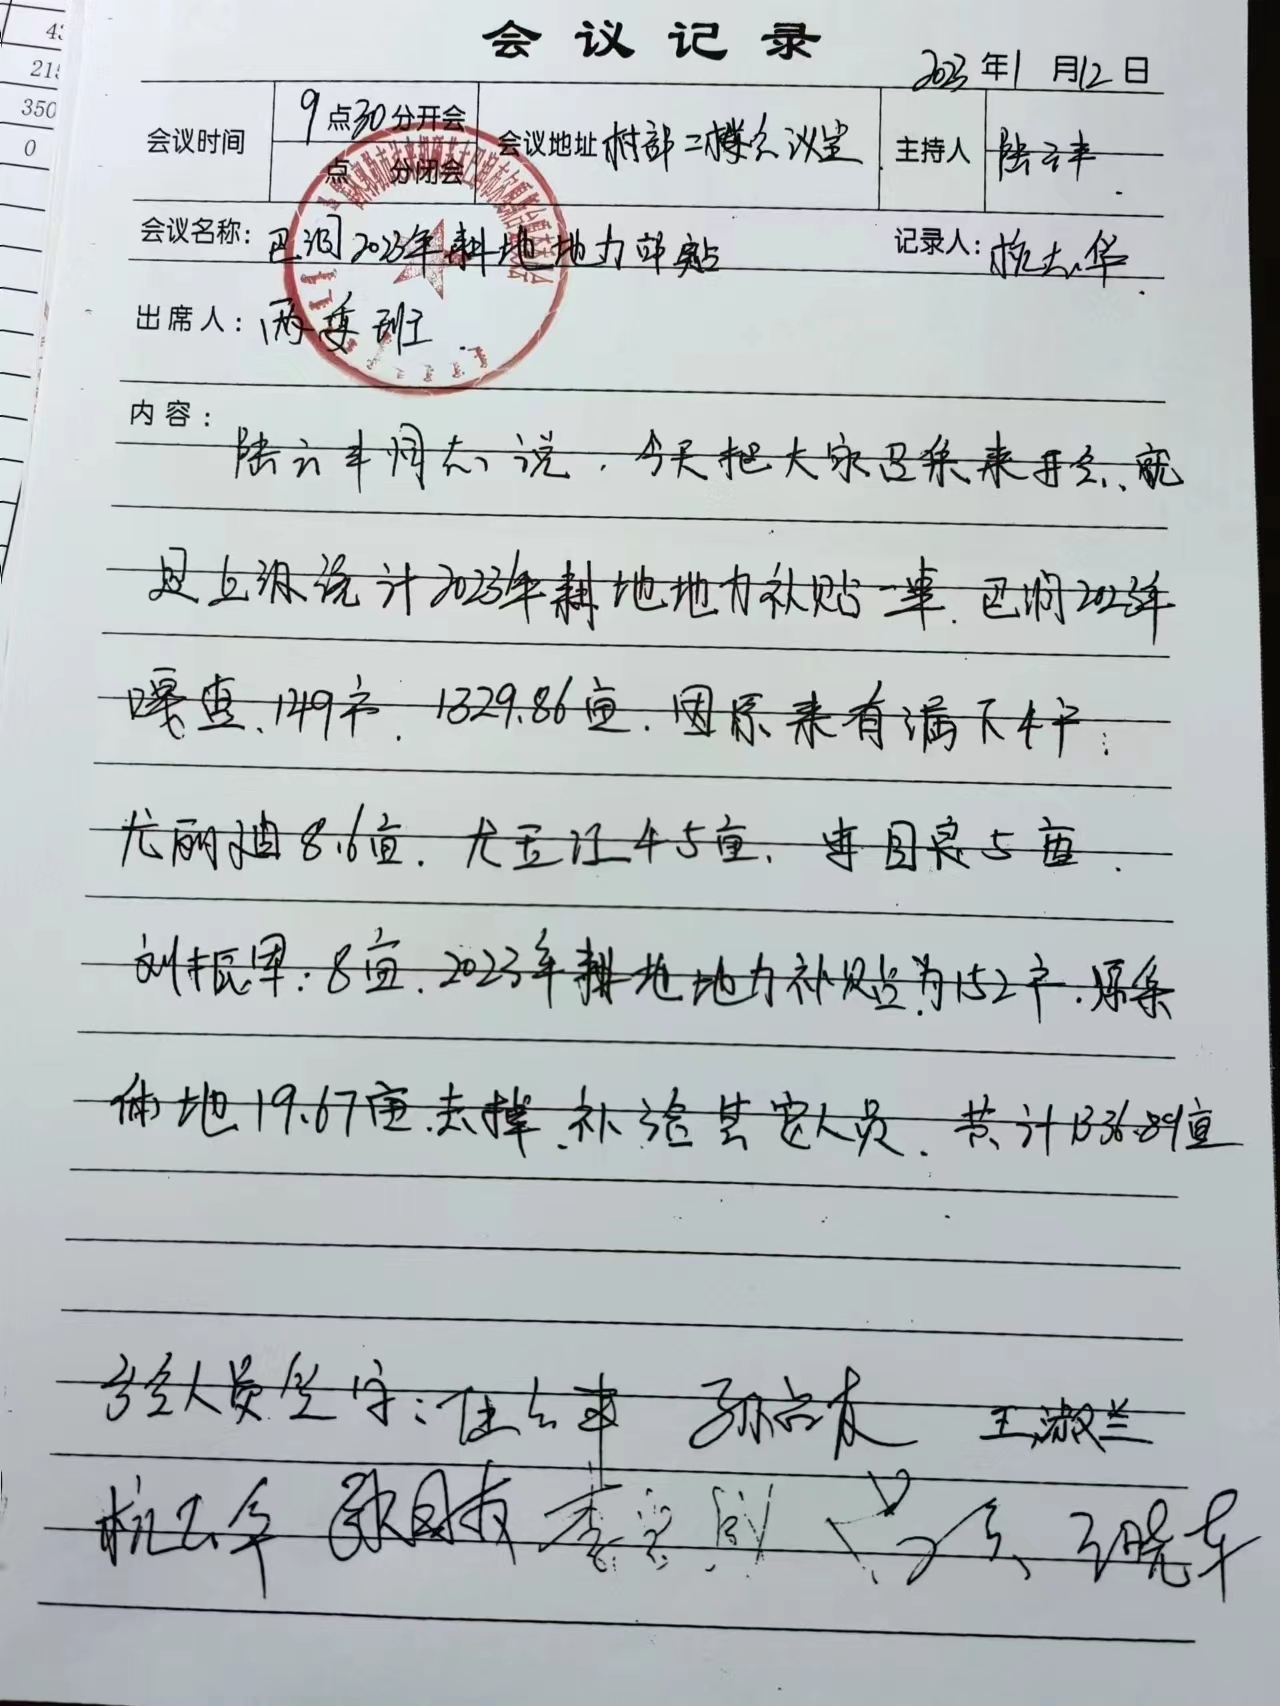 会议记录
2023年1月12日
会议时间 9点30分开会 会议地址 村部二楼会议室 主持人 陆云丰
点 分闭会
会议名称: 巴润2023年耕地地力补贴 记录人: 杭志华
出席人: 两委班
内容:
陆云丰同志说,今天把大家召集来开会,就
是上级统计2023年耕地地力补贴一事.巴润2023年
嘎查、149户.1329.86亩.因原来有漏下4户:
尤丽迪8.6亩.尤玉江4.5亩、李国良5亩.
刘振军:8亩.2023年耕地地力补贴为152户.原集
体地19.67亩去掉.补给其它人员.共计1336.89亩
参会人员签字:陆云丰 王淑兰
杭志华
43
215
350
0